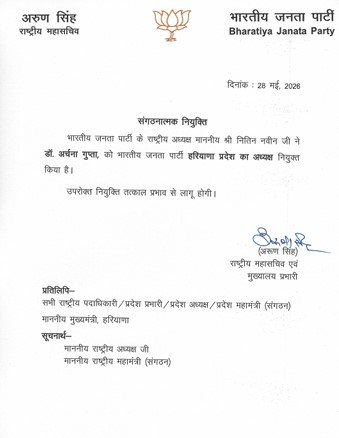 अरुण सिंह
राष्ट्रीय महासचिव
भारतीय जनता पार्टी
Bharatiya Janata Party
दिनांक : 28 मई, 2026
संगठनात्मक नियुक्ति
भारतीय जनता पार्टी के राष्ट्रीय अध्यक्ष माननीय श्री नितिन नवीन जी ने
डॉ. अर्चना गुप्ता, को भारतीय जनता पार्टी हरियाणा प्रदेश का अध्यक्ष नियुक्त
किया है।
उपरोक्त नियुक्ति तत्काल प्रभाव से लागू होगी।
(अरूण सिंह)
राष्ट्रीय महासचिव एवं
मुख्यालय प्रभारी
प्रतिलिपि–
सभी राष्ट्रीय पदाधिकारी/प्रदेश प्रभारी/प्रदेश अध्यक्ष/प्रदेश महामंत्री (संगठन)
माननीय मुख्यमंत्री, हरियाणा
सूचनार्थ–
माननीय राष्ट्रीय अध्यक्ष जी
माननीय राष्ट्रीय महामंत्री (संगठन)